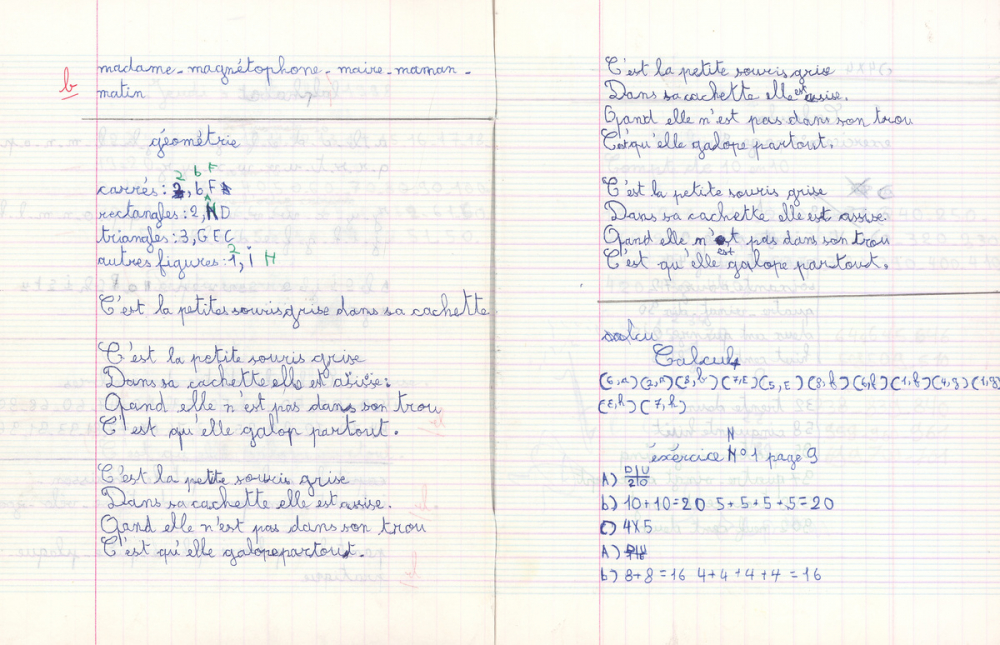 b
madame - magnétophone - maire - maman -
matin
géométrie
2 b F
carrés : 2, b, F
rectangles : 2, N D
triangles : 3, G E C
2
autres figures : 1, i H
C'est la petite souris grise dans sa cachette
C'est la petite souris grise
Dans sa cachette elle est assise.
Qand elle n'est pas dans son trou
C'est qu'elle galop partout.
C'est la petite souris grise
Dans sa cachette elle est assise.
Qand elle n'est pas dans son trou
C'est qu'elle galope partout.
C'est la petite souris grise
Dans sa cachette elle est assise.
Qand elle n'est pas dans son trou
C'est qu'elle galope partout.
C'est la petite souris grise
Dans sa cachette elle est assise.
Qand elle n'est pas dans son trou
est
C'est qu'elle galope partout.
calcu
Calcul
(6,a) (2,a) (3,h) (7,E) (5,E) (8,h) (6,h) (1,h) (4,g) (1,g)
(E,h) (7,h)
N
éxércice N° 1 page 9
D|U
A) 2|0
b) 10+10=20 5+5+5+5=20
C) 4X5
A)
b) 8+8=16 4+4+4+4=16